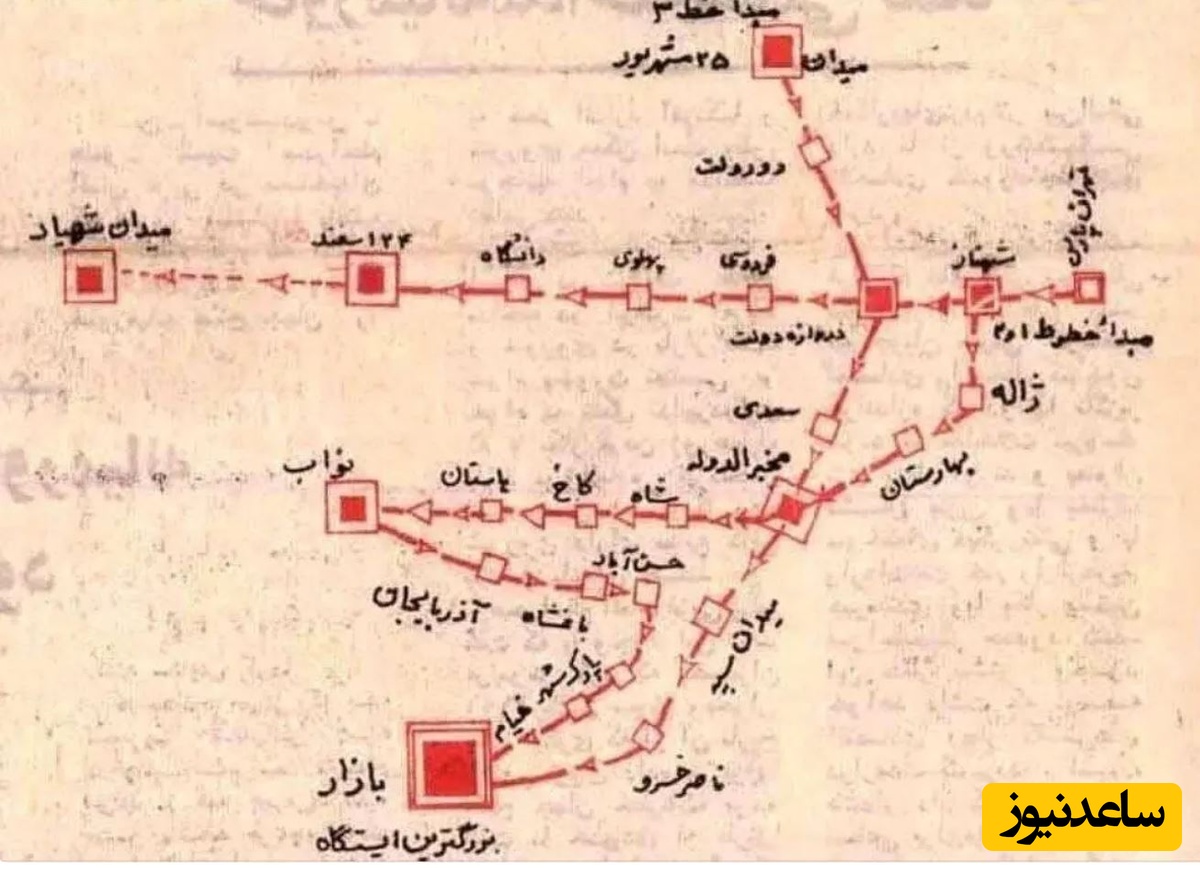 مبدا خط ۳
میدان ۲۵ شهریور
دورولت
تهران پارس
میدان شهیاد
۲۴ اسفند
دانشگاه
پهلوی
فردوسی
شهناز
دروازه دولت
مبدا خطوط ۱و۲
ژاله
سعدی
مخبرالدوله
بهارستان
نواب
باستان
کاخ
شاه
حسن آباد
آذربایجان
باغشاه
میدان سپه
پارک شهر
خیام
ناصرخسرو
بازار
بزرگترین ایستگاه
ساعدنیوز